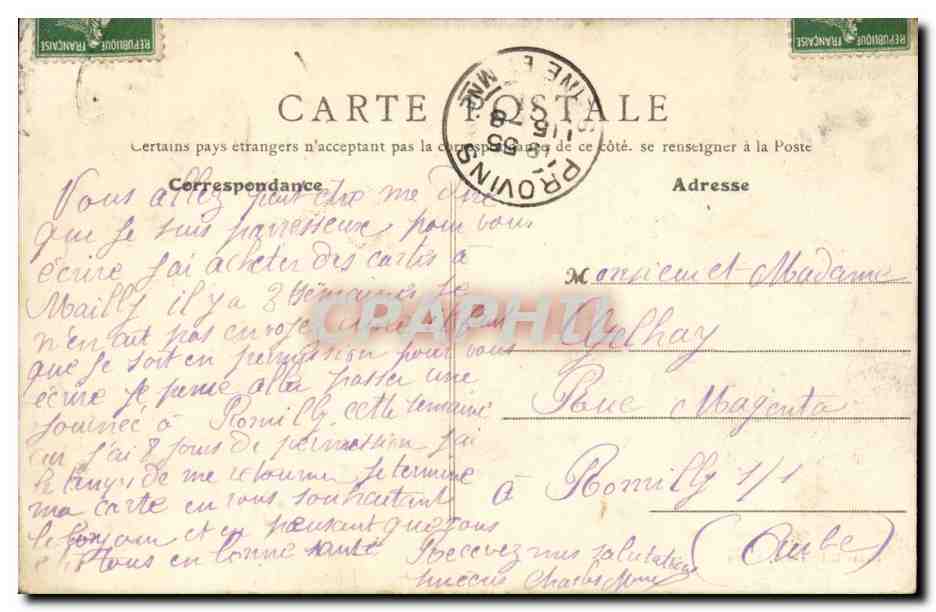 REPUBLIQUE FRANÇAISE
REPUBLIQUE FRANÇAISE
CARTE POSTALE
PROVINS
SEINE ET MNE
18 55
15 - 8
Certains pays étrangers n'acceptant pas la correspondance de ce côté. se renseigner à la Poste
Correspondance
Adresse
Vous allez peut être me dire
que je suis parresseux pour vous
écrire j'ai acheter des cartes à
Mailly il y a 3 semaines je
n'en ait pas envoyé
que je soit en permission pour vous
écrire je pense aller passer une
journée à Romilly cette semaine
car j'ai 8 jours de permission j'ai
le temps de me retourner je termine
ma carte en vous souhaitant
le bonjour et en pensant que vous
êtes tous en bonne santé
Recevez mes salutations
sincères Charles
Monsieur et Madame
Rue Magenta
à Romilly s/s
(Aube)
CPAPHTI